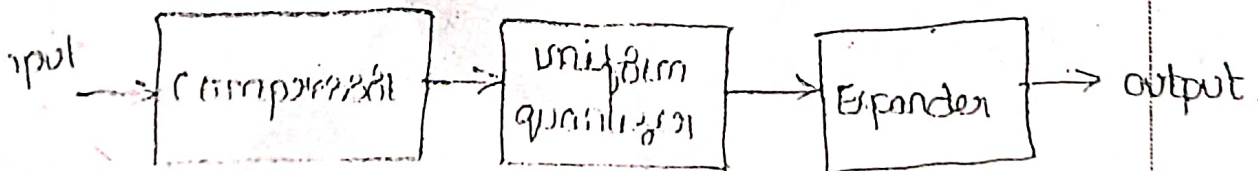 input
Compressor
uniform
quantizer
Expander
output